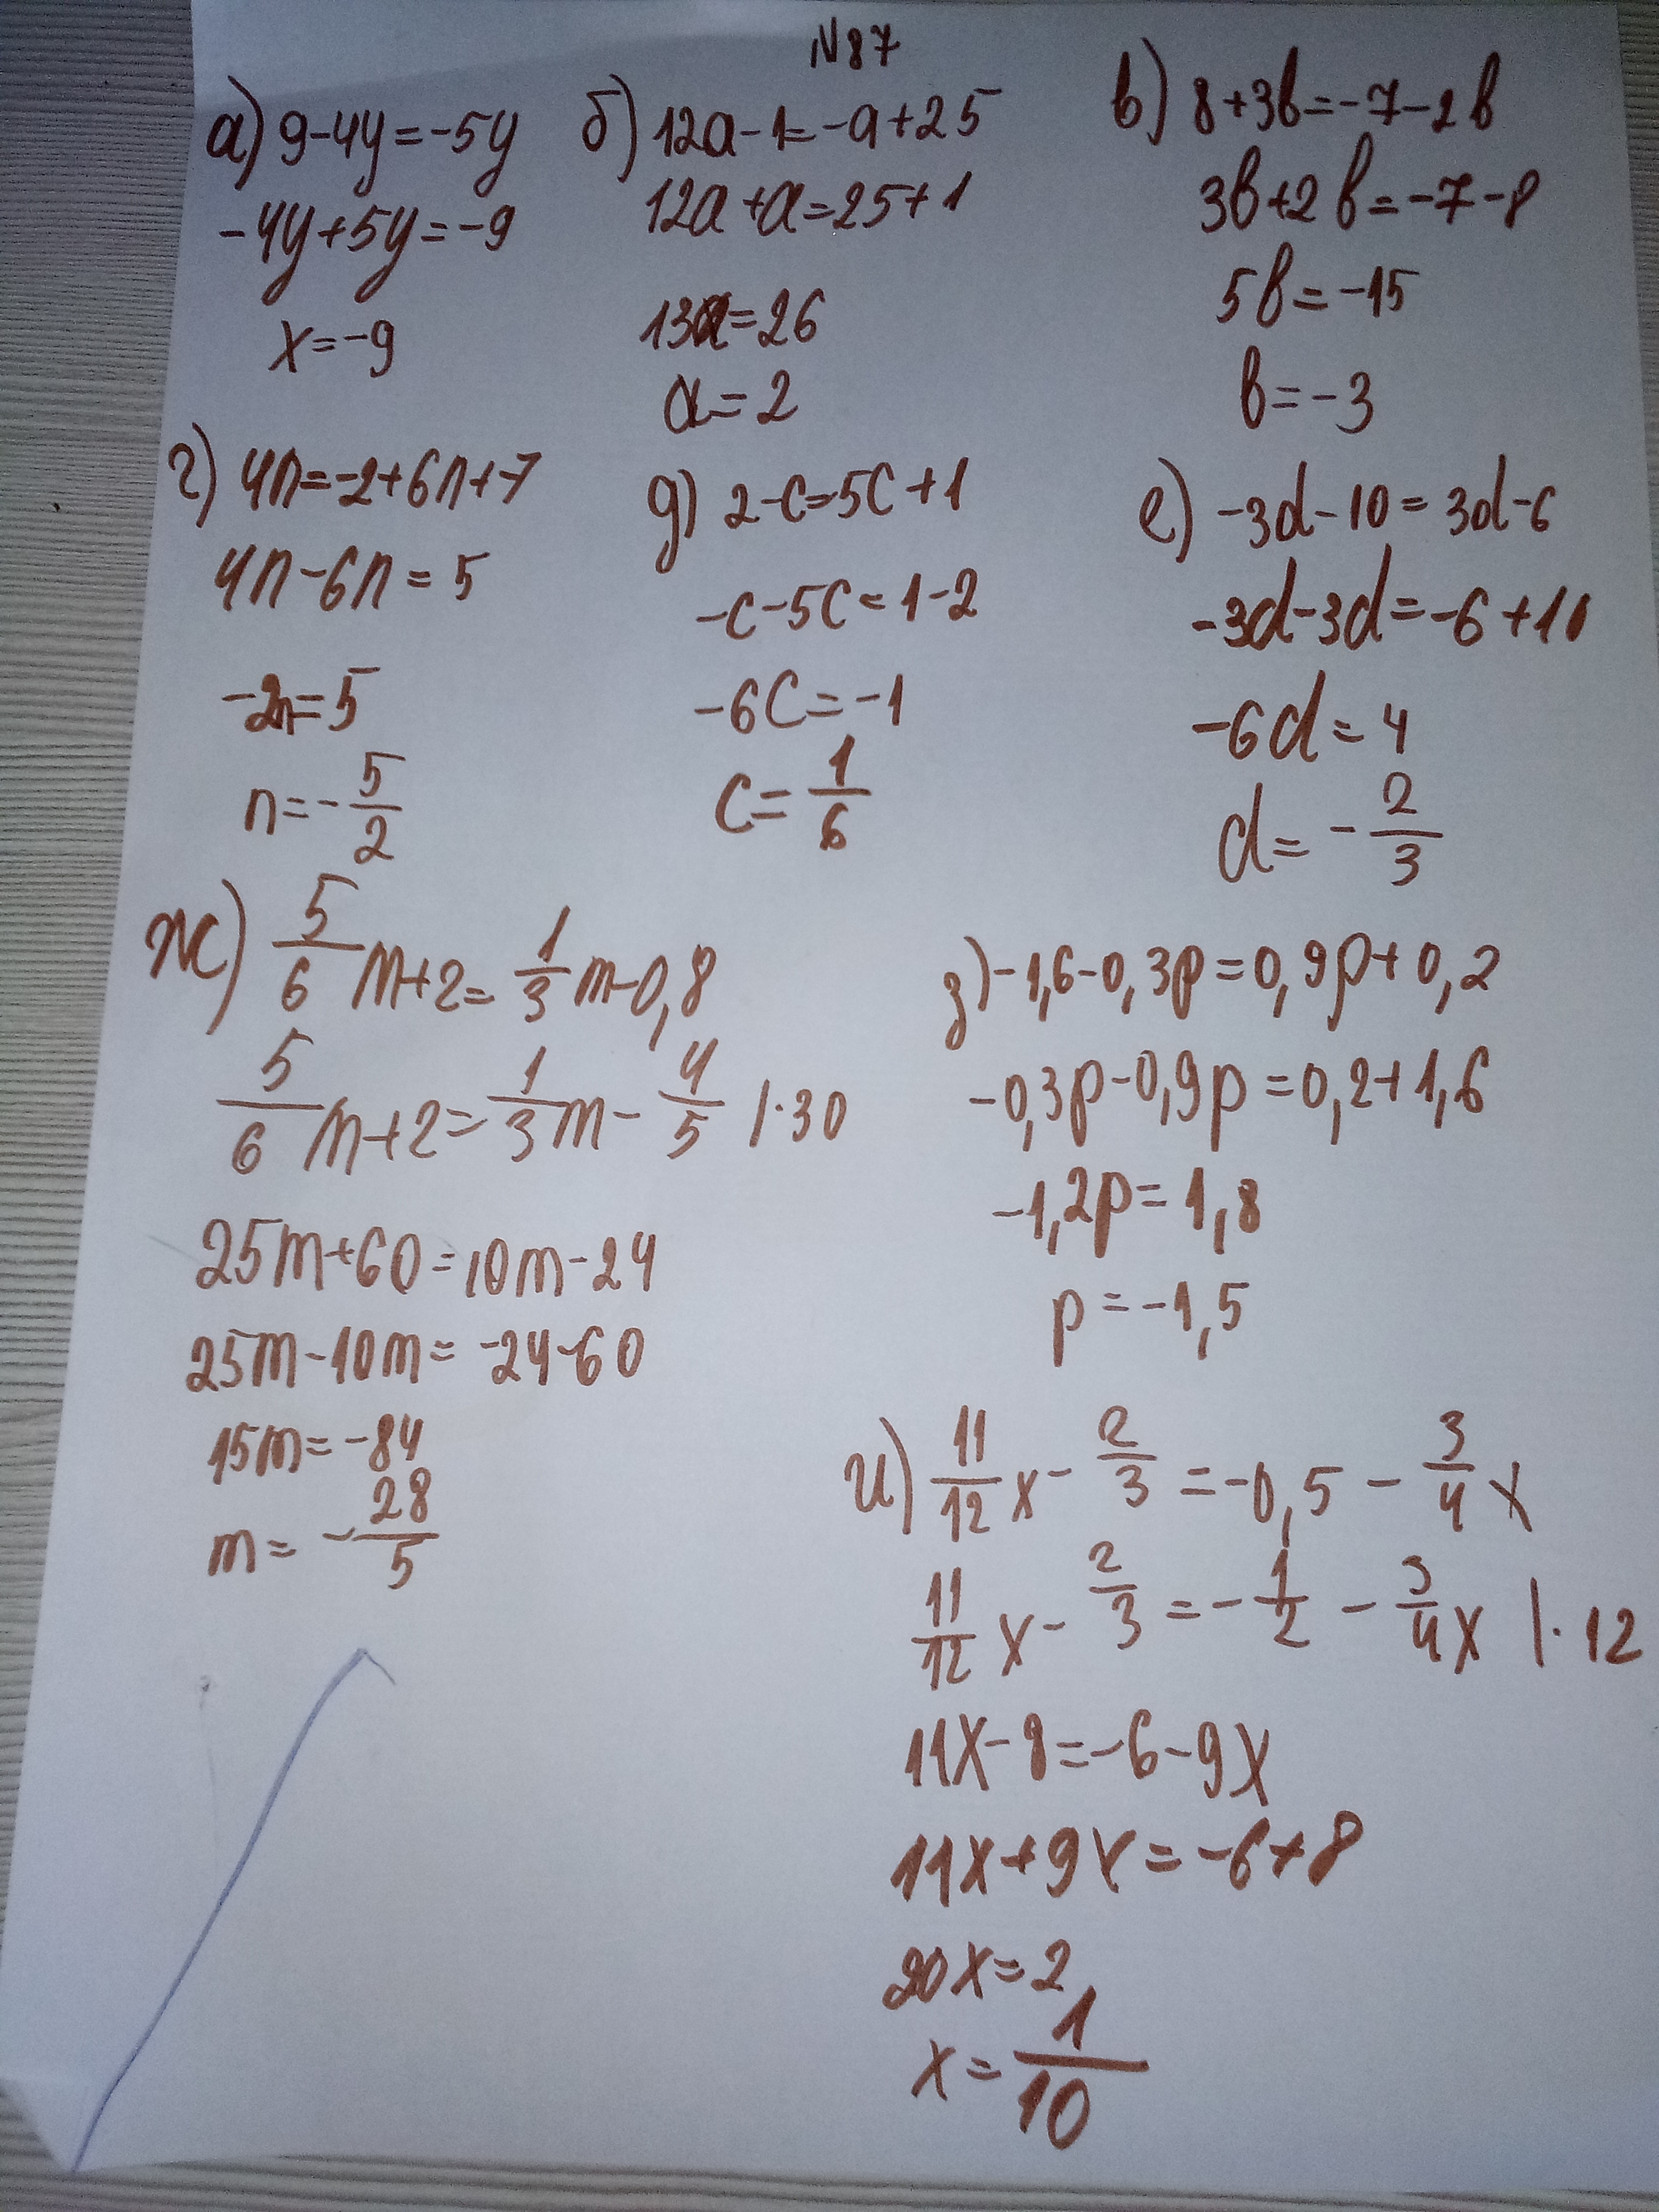 N87
а) 9-4y=-5y
-4y+5y=-9
x=-9
б) 12a-1=-a+25
12a+a=25+1
13a=26
a=2
в) 8+3b=-7-2b
3b+2b=-7-8
5b=-15
b=-3
г) 4n=-2+6n+7
4n-6n=5
-2n=5
n=-5/2
д) 2-c=5c+1
-c-5c=1-2
-6c=-1
c=1/6
е) -3d-10=3d-6
-3d-3d=-6+10
-6d=4
d=-2/3
ж) 5/6m+2=1/3m-0,8
5/6m+2=1/3m-4/5 |·30
25m+60=10m-24
25m-10m=-24-60
15m=-84
m=-28/5
з) -1,6-0,3p=0,9p+0,2
-0,3p-0,9p=0,2+1,6
-1,2p=1,8
p=-1,5
и) 11/12x-2/3=-0,5-3/4x
11/12x-2/3=-1/2-3/4x |·12
11x-8=-6-9x
11x+9x=-6+8
20x=2
x=1/10